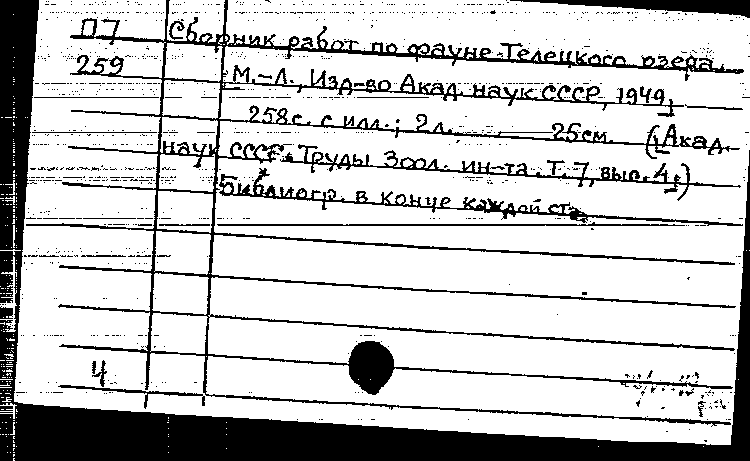 П7 Сборник работ по фауне Телецкого озера.
259 М.-Л., Изд-во Акад. наук СССР, 1949.
258с. с илл.; 2л. 25см. (Акад.
наук СССР. Труды Зоол. ин-та. Т. 7, вып. 4.)
Библиогр. в конце каждой ст.
4